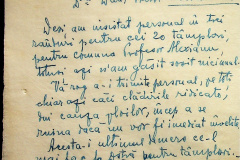 Deși am insistat personal în trei
rânduri pentru cei 20 tâmplari,
pentru comuna Profesor Alexianu,
totuși azi n'am găsit sosit niciunul.
Vă rog a-i trimite personal, pe toți
chiar azi căci clădirile ridicate,
din cauza ploilor, încep a se
ruina dacă nu vor fi imediat
Acesta-i ultimul cel
mai pentru tâmplari.